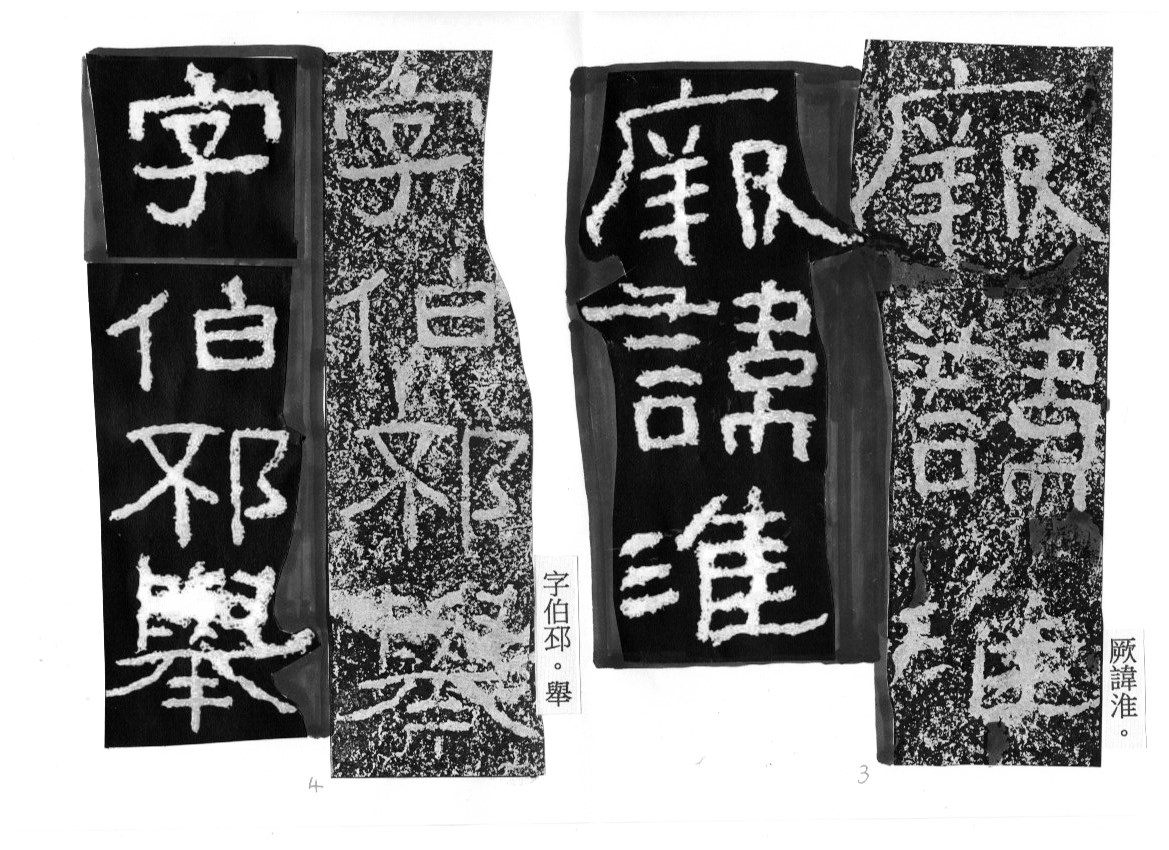 厥諱淮。
厥諱淮
厥諱淮
3
字伯邳。舉
字伯邳舉
字伯邳舉
4